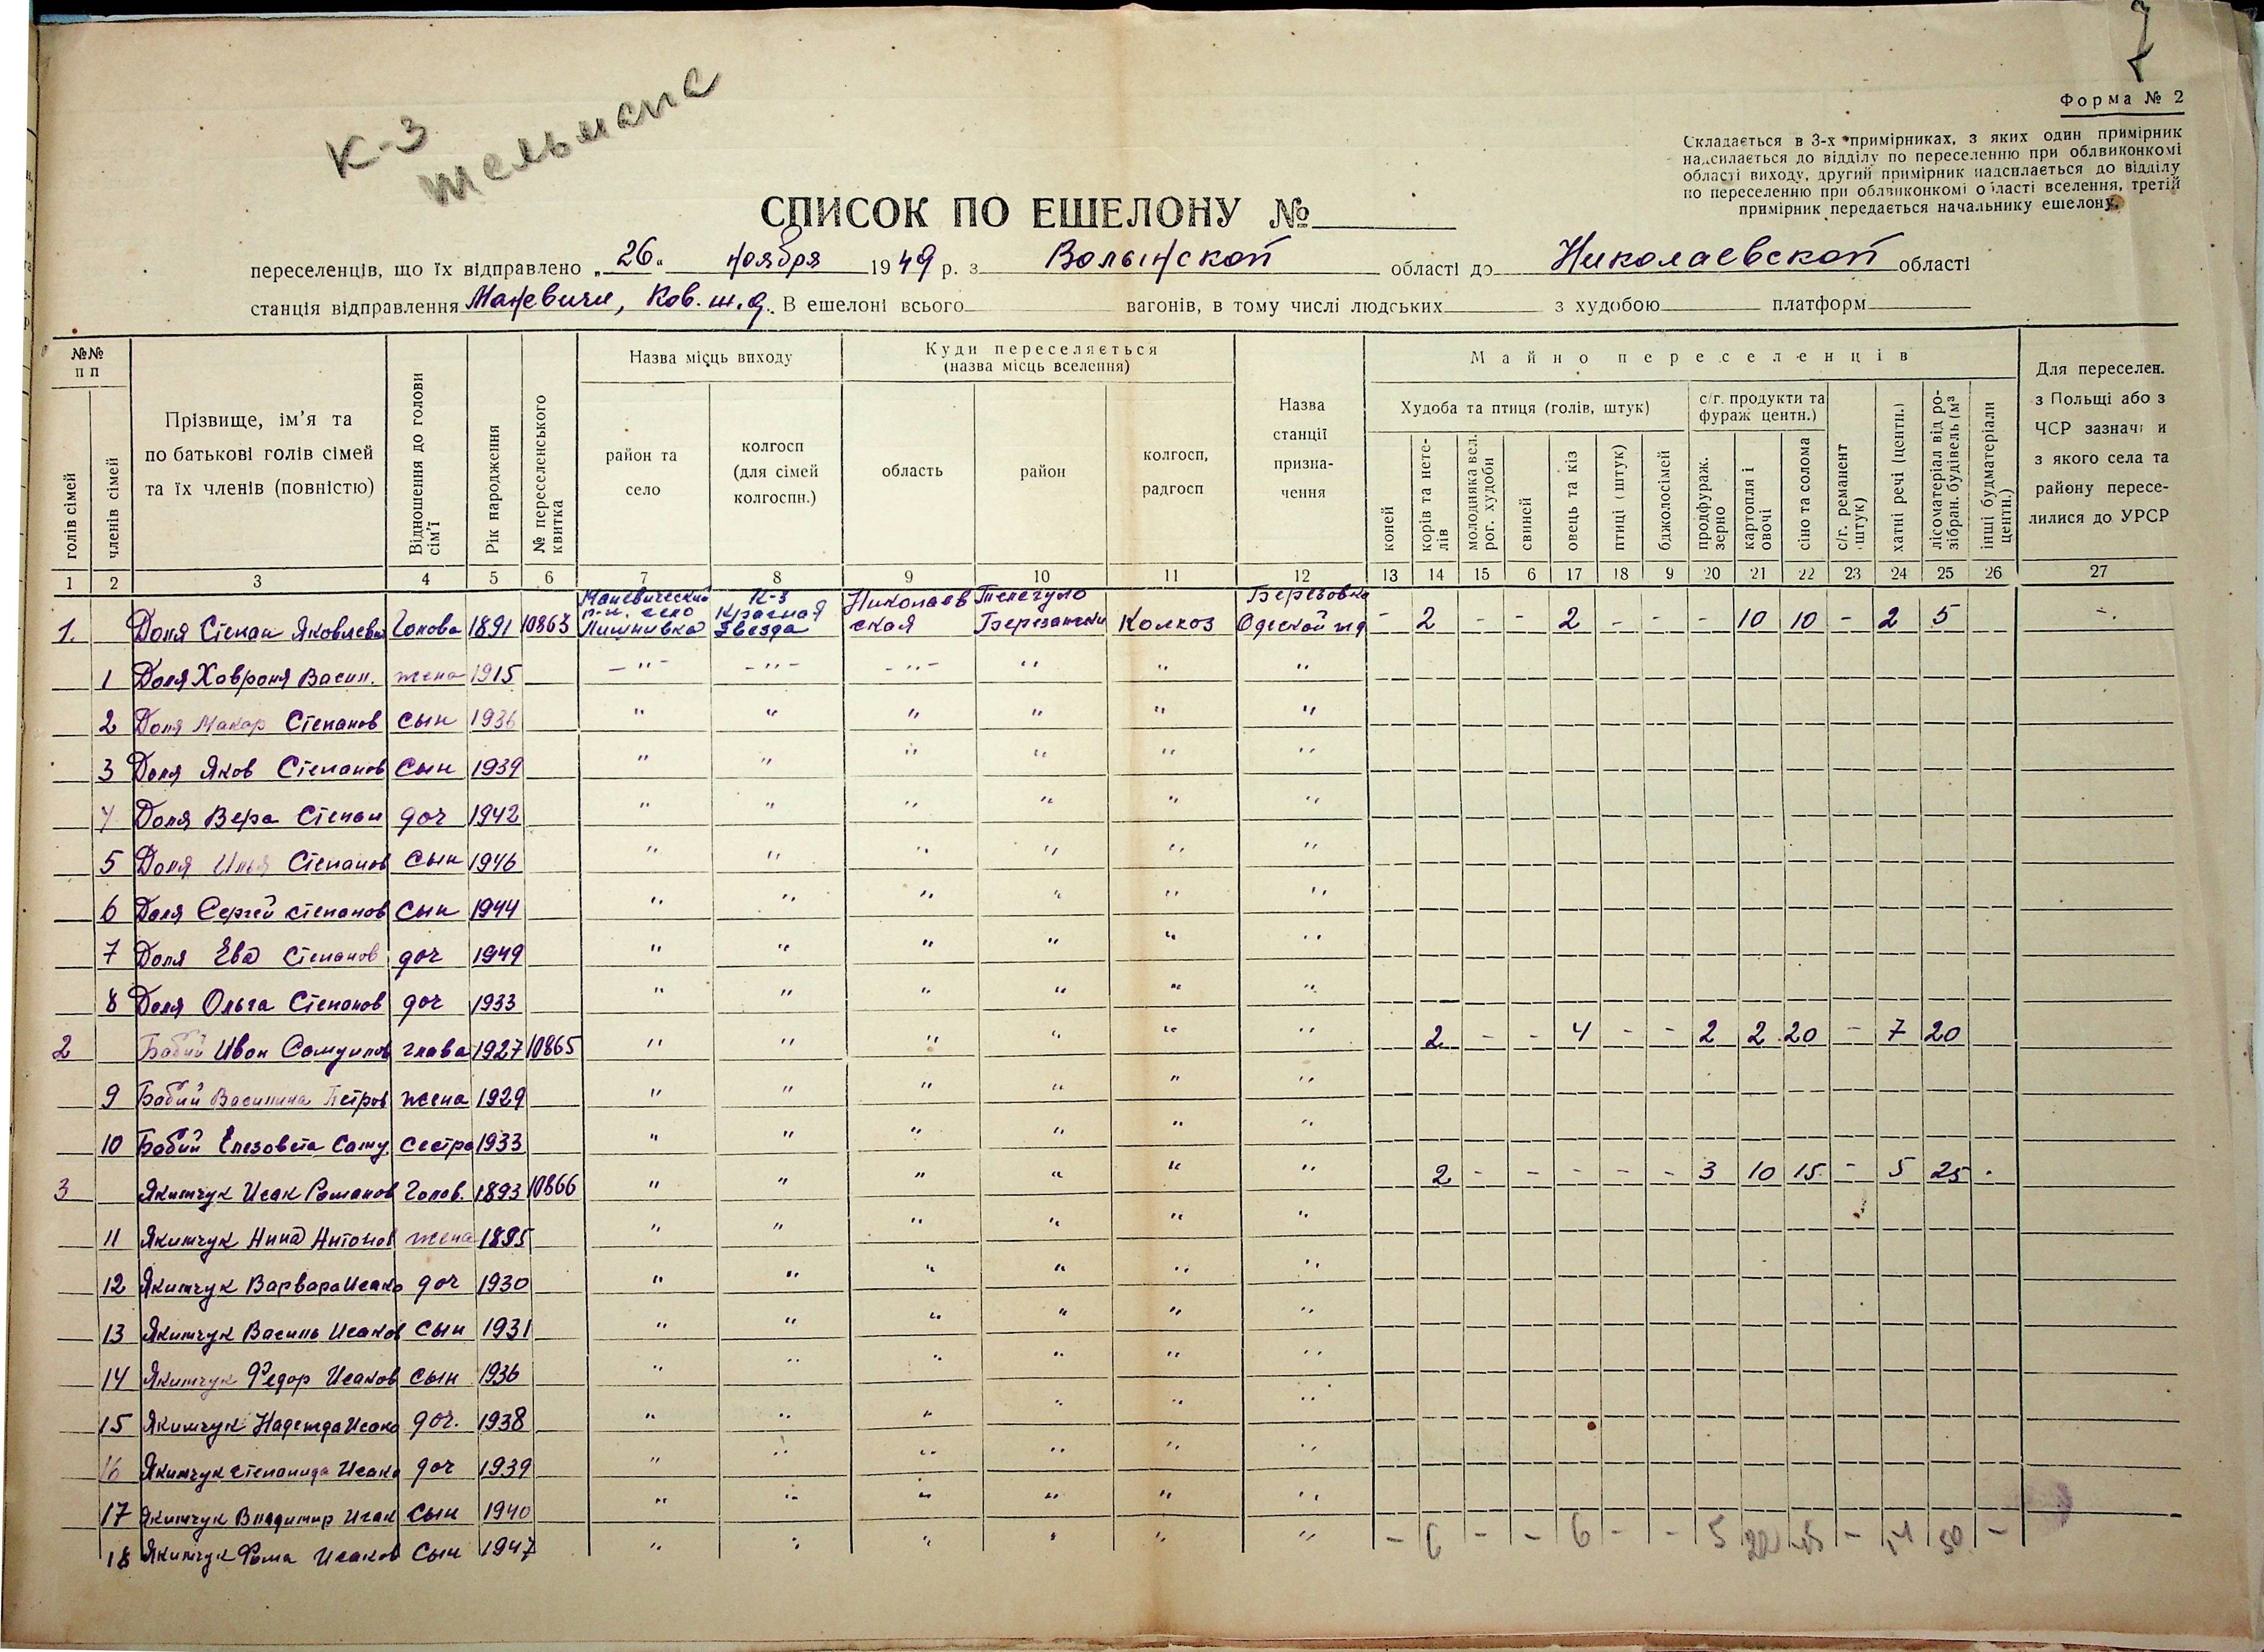 7
К-з
тельмана
Форма № 2
Складається в 3-х примірниках, з яких один примірник
надсилається до відділу по переселенню при облвиконкомі
області виходу, другий примірник надсилається до відділу
по переселенню при облвиконкомі області вселення, третій
примірник передається начальнику ешелону.
СПИСОК ПО ЕШЕЛОНУ №
переселенців, що їх відправлено „26“ ноября 1949 р. з Волынской області до Николаевской області
станція відправлення Маневичи, Ков. ж.д. В ешелоні всього вагонів, в тому числі людських з худобою платформ
№№ п п
голів сімей
членів сімей
Прізвище, ім'я та
по батькові голів сімей
та їх членів (повністю)
Відношення до голови сім'ї
Рік народження
№ переселенського квитка
Назва місць виходу
район та село
колгосп (для сімей колгоспн.)
Куди переселяється
(назва місць вселення)
область
район
колгосп, радгосп
Назва станції призначення
Майно переселенців
Худоба та птиця (голів, штук)
коней
корів та нетелів
молодняка вел. рог. худоби
свиней
овець та кіз
птиці (штук)
бджолосімей
с/г. продукти та фураж центн.)
продфураж. зерно
картопля і овочі
сіно та солома
с/г. реманент (штук)
хатні речі (центн.)
лісоматеріал від розібран. будівель (м³
інші будматеріали центн.)
Для переселен.
з Польщі або з
ЧСР зазнач и
з якого села та
району пересе-
лилися до УРСР
1 2 3 4 5 6 7 8 9 10 11 12 13 14 15 6 17 18 9 20 21 22 23 24 25 26 27
1. Доля Степан Яковлев Голова 1891 10863 Маневический р-н. село Лишнивка К-з Красная Звезда Николаевская Тилегуло Березански Колхоз Березовка Одеской жд - 2 - - 2 - - - 10 10 - 2 5 -
1 Доля Хавроня Васил. жена 1915 -"- -"- -"- " " "
2 Доля Макар Степанов сын 1936 " " " " " "
3 Доля Яков Степанов сын 1939 " " " " " "
4 Доля Вера Степан доч 1942 " " " " " "
5 Доля Илья Степанов сын 1946 " " " " " "
6 Доля Сергей степанов сын 1944 " " " " " "
7 Доля Ева Степанов доч 1949 " " " " " "
8 Доля Ольга Степанов доч 1933 " " " " " "
2 Бабий Иван Самуилов глава 1927 10865 " " " " " " 2 - - 4 - - 2 2 20 - 7 20
9 Бабий Василина Петров жена 1929 " " " " " "
10 Бабий Елезовета Саму. сестра 1933 " " " " " "
3 Якимчук Исак Романов Голов. 1893 10866 " " " " " " 2 - - - - - 3 10 15 - 5 25 -
11 Якимчук Нина Антонов жена 1895 " " " " " "
12 Якимчук Варвара Исако доч 1930 " " " " " "
13 Якимчук Василь Исаков сын 1931 " " " " " "
14 Якимчук Федор Исаков сын 1936 " " " " " "
15 Якимчук Надежда Исако доч. 1938 " " " " " "
16 Якимчук степанида Исако доч 1939 " " " " " "
17 Якимчук Владимир Исак сын 1940 " " " " " "
18 Якимчук Фома Исаков Сын 1947 " " " " " " - 6 - - 6 - - 5 22 45 - 14 50 -